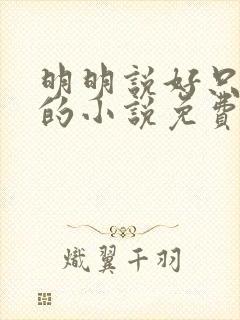 明明説好只
的小説免費
熾翼千羽